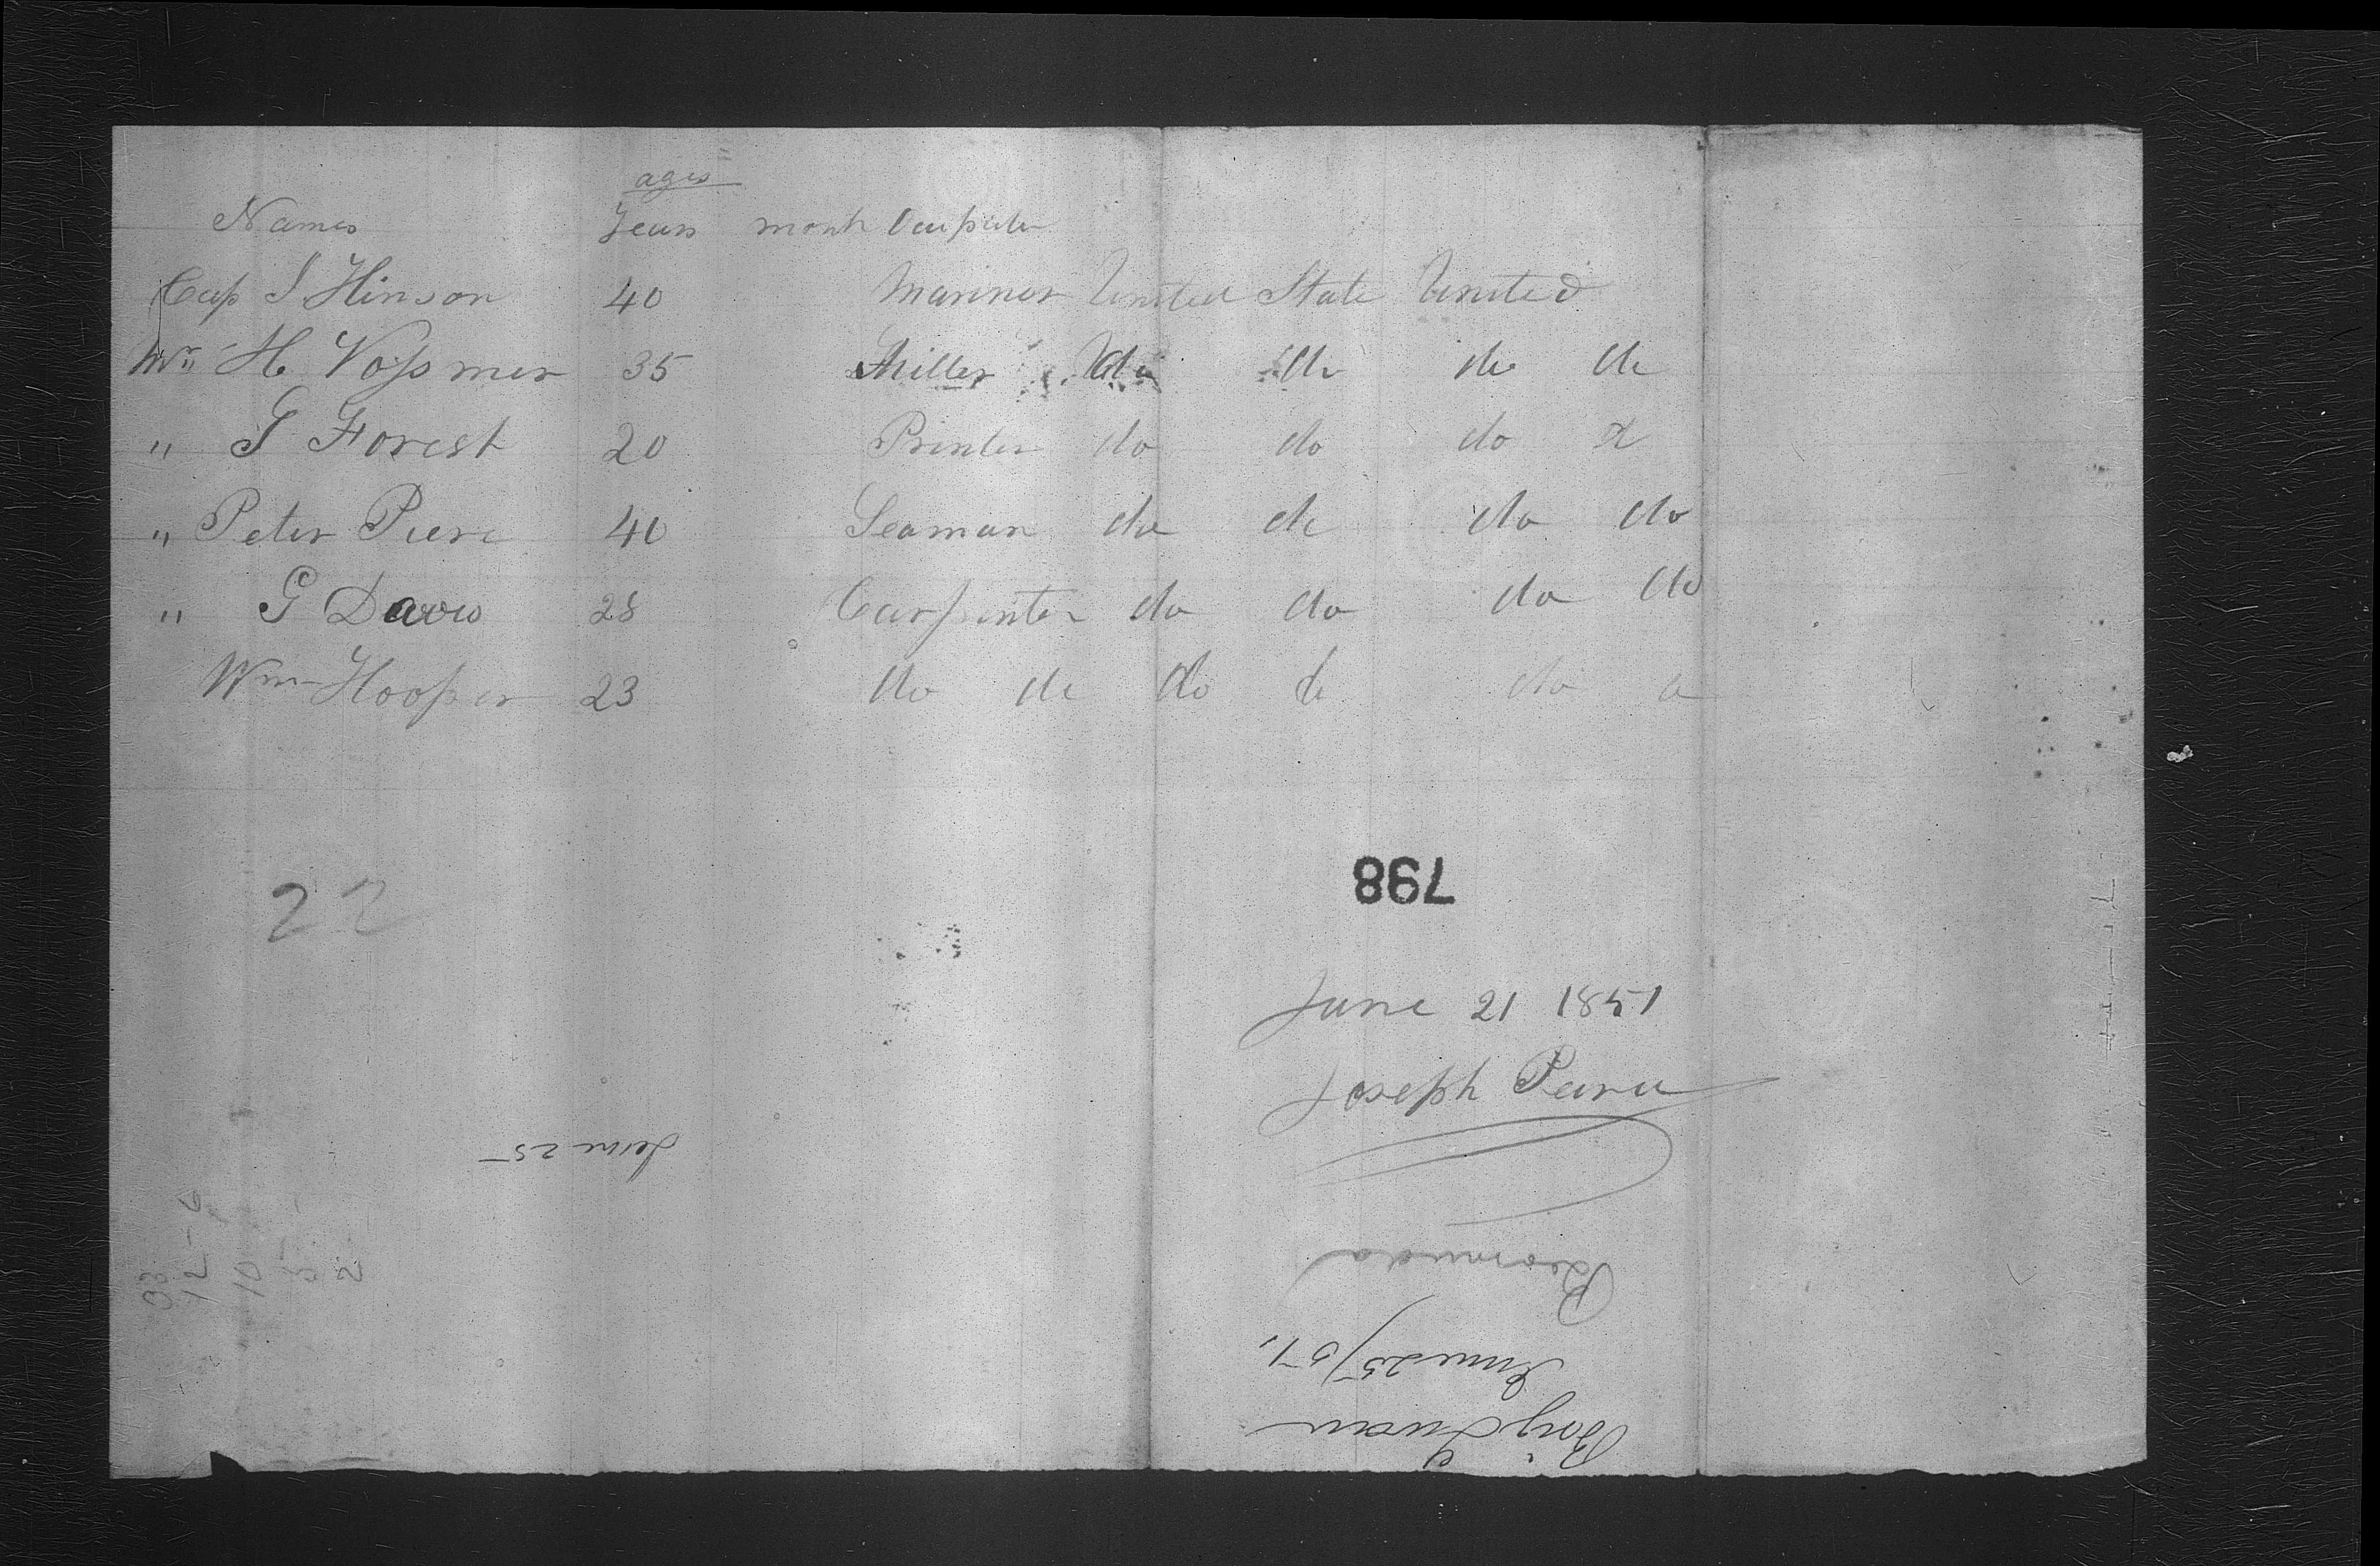 ages
Names Years month Occupatin
Cap S Hinson 40 Mariner United State United
Mr. H. Vossmer 35 Miller do do do do
" G Forest 20 Printer do do do do
" Peter Pierc 40 Seaman do do do do
" G Davis 28 Carpenter do do do do
Wm Hooper 23 do do do do do
22
798
June 21 1851
Joseph Pearce
June 25
33
12-6
10
5
2
Brig Swan
June 25/51.
Bermuda